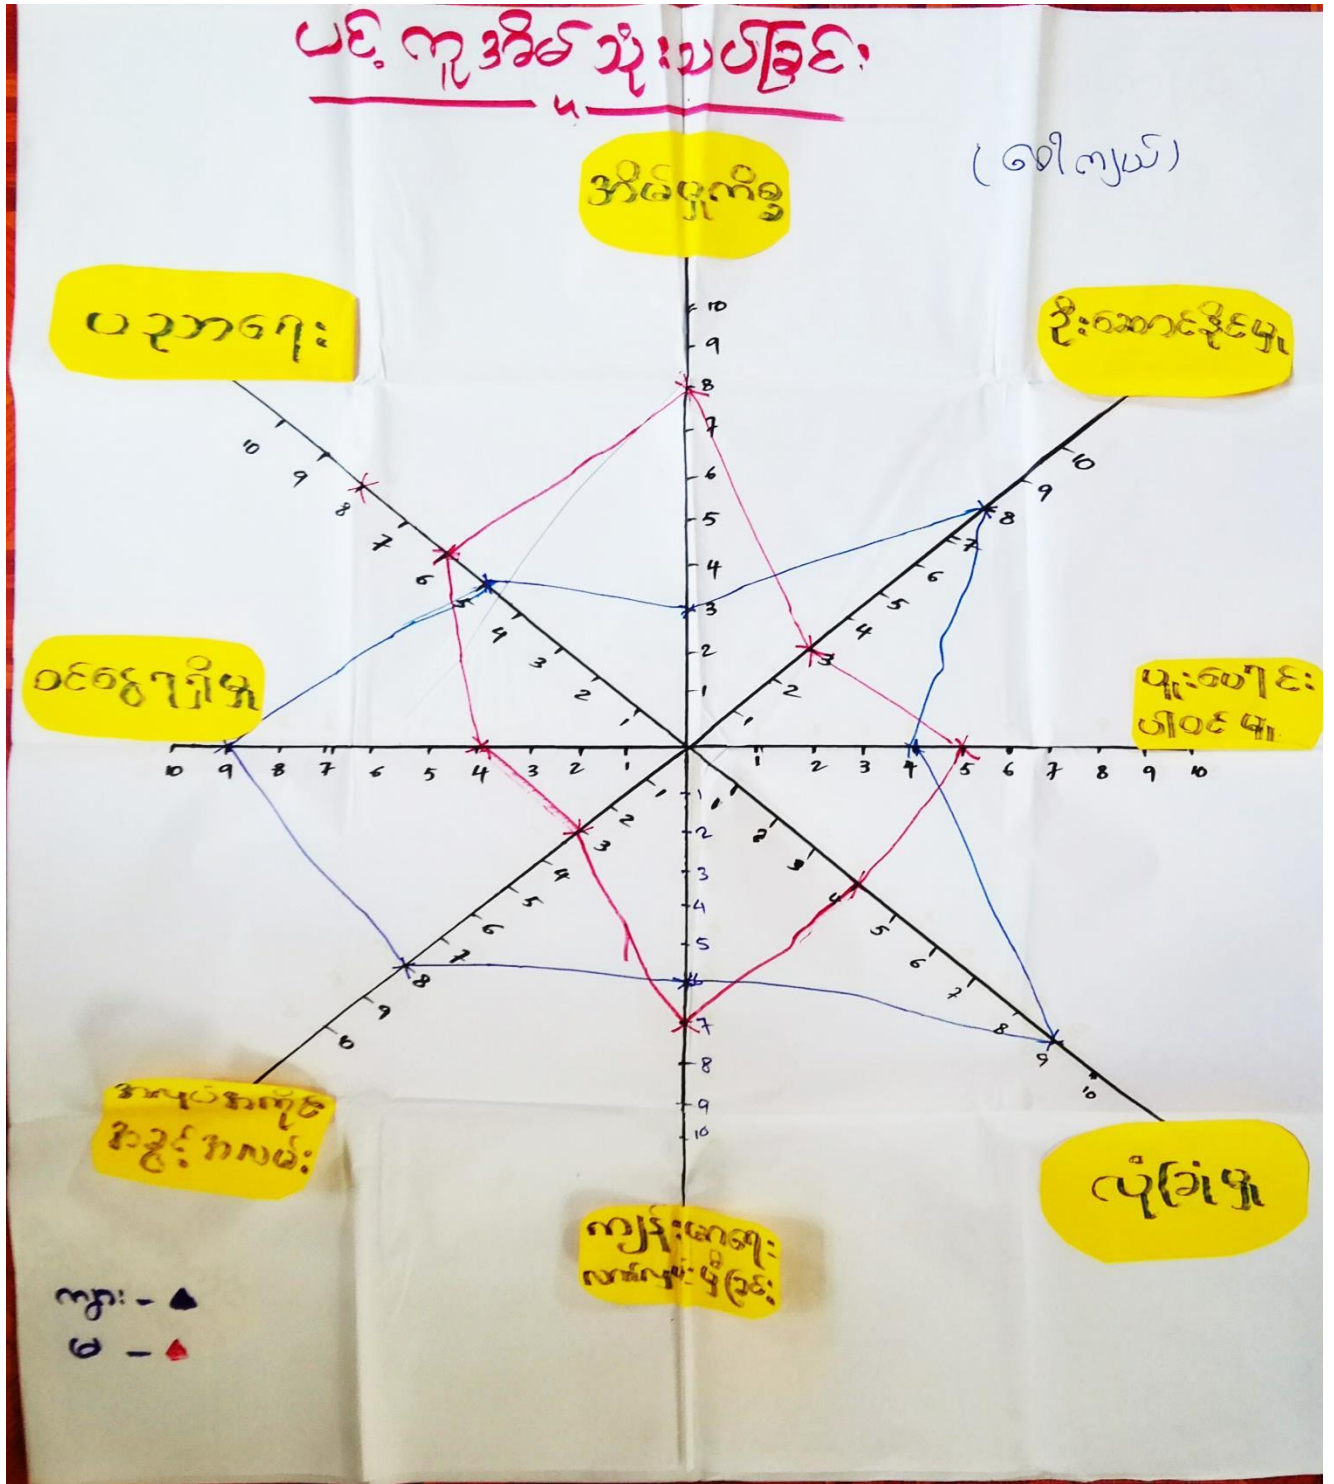 ပင့်ကူအိမ်သုံးသပ်ခြင်း
(ဝေါကျယ်)
အိမ်မှုကိစ္စ
ပညာရေး
ဦးဆောင်နိုင်မှု
ဝင်ငွေရရှိမှု
ပူးပေါင်း
ပါဝင်မှု
အလုပ်အကိုင်
အခွင့်အလမ်း
လုံခြုံမှု
ကျန်းမာရေး
လက်လှမ်းမှီခြင်း
10
9
8
7
6
5
4
3
2
1
10
9
8
7
6
5
4
3
2
1
10
9
8
7
6
5
4
3
2
1
10
9
8
7
6
5
4
3
2
1
1
2
3
4
5
6
7
8
9
10
1
2
3
4
5
6
7
8
9
10
1
2
3
4
5
6
7
8
9
10
1
2
3
4
5
6
7
8
9
10
ကျား -
မ -